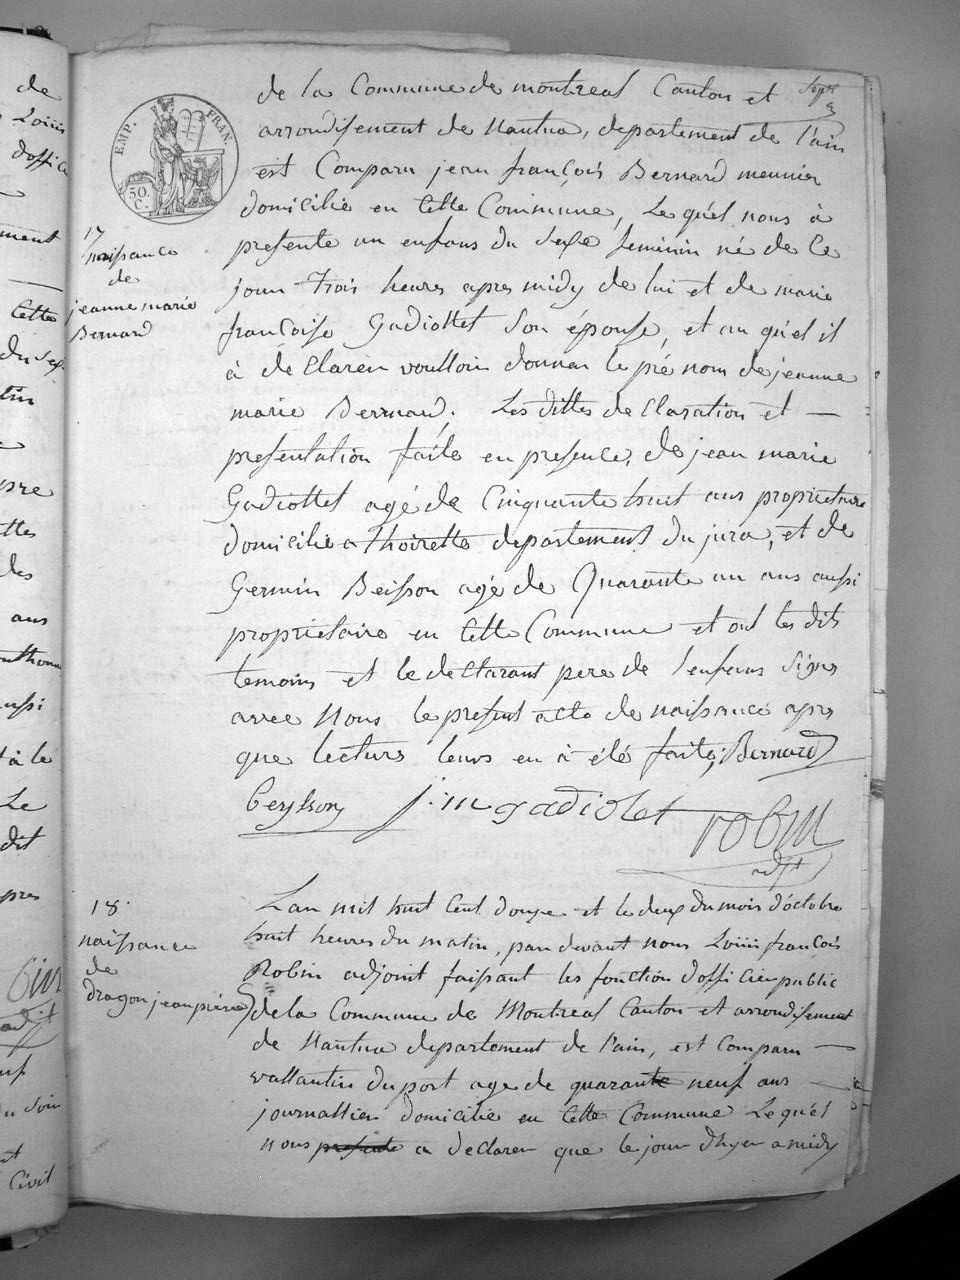 de la Commune de montreal Canton et
arrondissement de Nantua, departement de l'ain
est Comparu jean françois Bernard meunier
domicilié en Cette Commune, Le quel nous à
presente un enfans du sexe feminin né de Ce
jour trois heures apres midy de lui et de marie
françoise Gadiollet Son épouse, et au quel il
à de Clarer voulloir donner le pré nom de jeanne
marie Bernard. Les dittes de Claration et —
presentation faite en presence, de jean marie
Gadiollet agé de Cinquante huit ans proprietaire
domicilié a thoirette departement du jura, et de
Germin Beisson agé de Quarante un ans aussi
proprietaire en Cette Commune et ont les dits
temoins et le de Clarant pere de l'enfans Signé
avec Nous le present acte de naissance apres
que lecture leurs en à été faite, Bernard
beysson j. m gadiolet robin
adjt
EMP. FRAN.
50
C.
17
naissance
de
jeanne marie
Bernard
Lan mil huit Cent douze et le deux du mois d'octobre
huit heures du matin, par devant nous Louis françois
Robin adjoint faissant les fonction d'officier public
de la Commune de Montreal Canton et arrondissement
de Nantua departement de l'ain, est Comparu —
vallantin duport age de quarante neuf ans
journallier domicilié en Cette Commune Le quel
nous presente a declarer que le jour d'hyer a midy
18
naissance
de
dragon jean pierre
de
Louis
d'offici
ment
Cette
du sex
tin
pre
ttes
les
ans
ussi
à le
Le
dit
pres
du soir
Civil